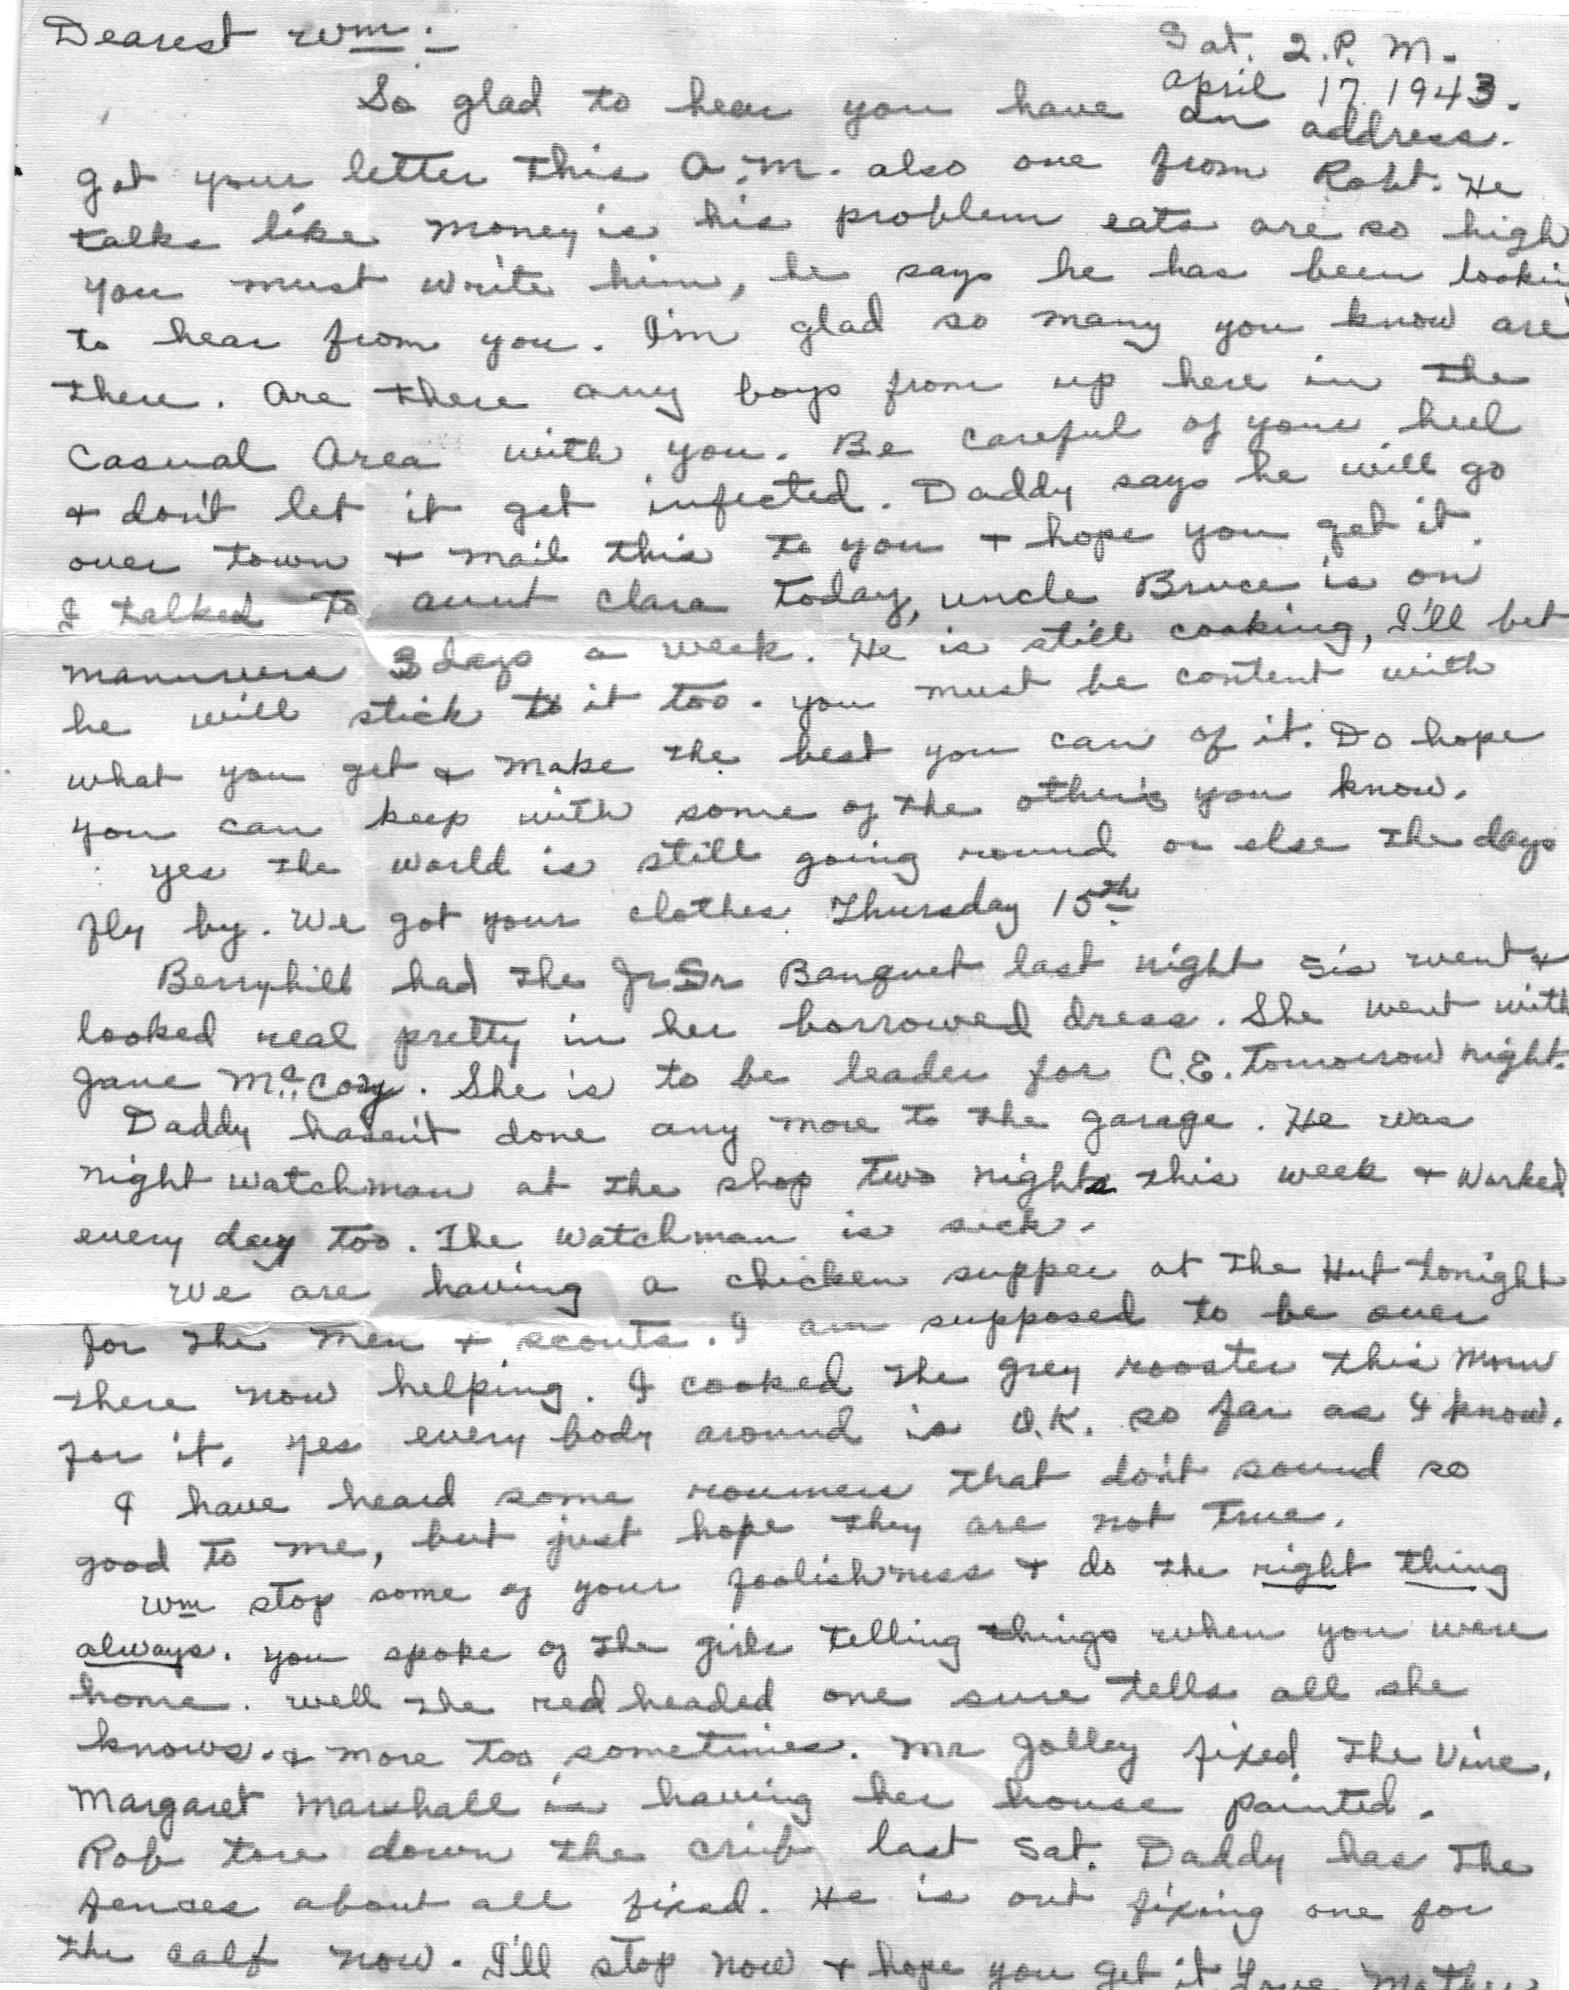 Dearest Wm. -
Sat. 2. P. M.
April 17 1943.
So glad to hear you have an address.
got your letter this A.M. also one from Robt. He
talks like money is his problem eats are so high
you must write him, he says he has been lookin
to hear from you. I'm glad so many you know are
there. Are there any boys from up here in the
Casual Area with you. Be careful of your heel
& don't let it get infected. Daddy says he will go
over town & mail this to you & hope you get it.
I talked to aunt Clara today, uncle Bruce is on
manuvers 3 days a week. He is still cooking, I'll bet
he will stick to it too. you must be content with
what you get & make the best you can of it. Do hope
you can keep with some of the others you know.
yes the world is still going round or else the days
fly by. We got your clothes Thursday 15th
Berryhill had the Jr Sr Banquet last night Sis went &
looked real pretty in her borrowed dress. She went with
Jane McCoy. She is to be leader for C.E. tomorrow night.
Daddy hasen't done any more to the garage. He was
night watchman at the shop two nights this week & worked
every day too. The watchman is sick.
We are having a chicken supper at the Hut tonight
for the men & scouts. I am supposed to be over
there now helping. I cooked the grey rooster this morn
for it. yes every body around is O.K. so far as I know.
I have heard some roumers that don't sound so
good to me, but just hope they are not true.
Wm stop some of your foolishness & do the right thing
always. you spoke of the girls telling things when you were
home. well the red headed one sure tells all she
knows. & more too sometimes. Mr Jolley fixed the vine.
Margaret Marshall is having her house painted.
Rob tore down the crib last Sat. Daddy has the
fences about all fixed. He is out fixing one for
the calf now. I'll stop now & hope you get it Love Mother